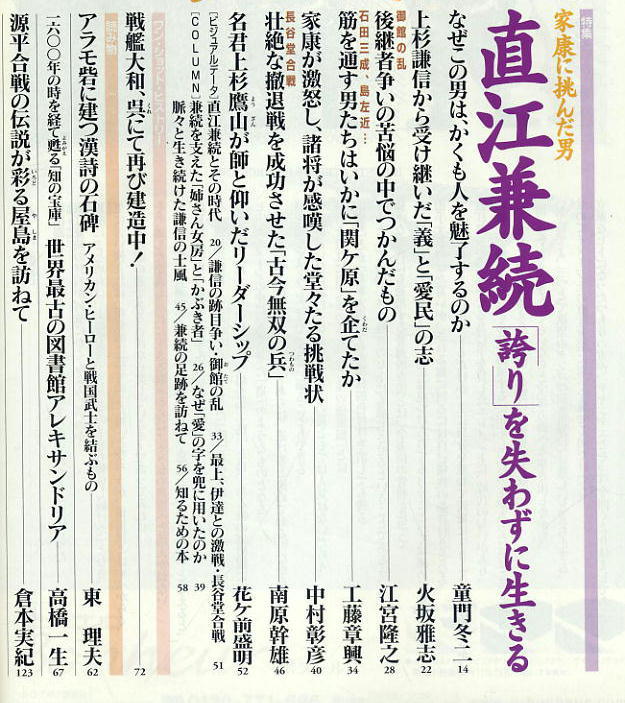 特集
家康に挑んだ男
直江兼続
「誇り」を失わずに生きる
なぜこの男は、かくも人を魅了するのか 童門冬二 14
上杉謙信から受け継いだ「義」と「愛民」の志 火坂雅志 22
御館の乱
後継者争いの苦悩の中でつかんだもの 江宮隆之 28
石田三成、島左近…
筋を通す男たちはいかに「関ケ原」を企てたか 工藤章興 34
くわだ
家康が激怒し、諸将が感嘆した堂々たる挑戦状 中村彰彦 40
長谷堂合戦
壮絶な撤退戦を成功させた「古今無双の兵」 南原幹雄 46
つわもの
名君上杉鷹山が師と仰いだリーダーシップ 花ケ前盛明 52
ようざん
[ビジュアルデータ]直江兼続とその時代 20/謙信の跡目争い・御館の乱 33/最上、伊達との激戦・長谷堂合戦 51
おたて
[COLUMN]兼続を支えた「姉さん女房」と「かぶき者」 26/なぜ「愛」の字を兜に用いたのか 39
脈々と生き続けた謙信の士風 45/兼続の足跡を訪ねて 56/知るための本 58
ワン・ショット・ヒストリー
戦艦大和、呉にて再び建造中! 72
くれ
読み物
アラモ砦に建つ漢詩の石碑 アメリカン・ヒーローと戦国武士を結ぶもの 東 理夫 62
一六〇〇年の時を経て甦る「知の宝庫」 世界最古の図書館アレキサンドリア 高橋一生 67
よみがえ
源平合戦の伝説が彩る屋島を訪ねて 倉本実紀 123
いろど
やしま